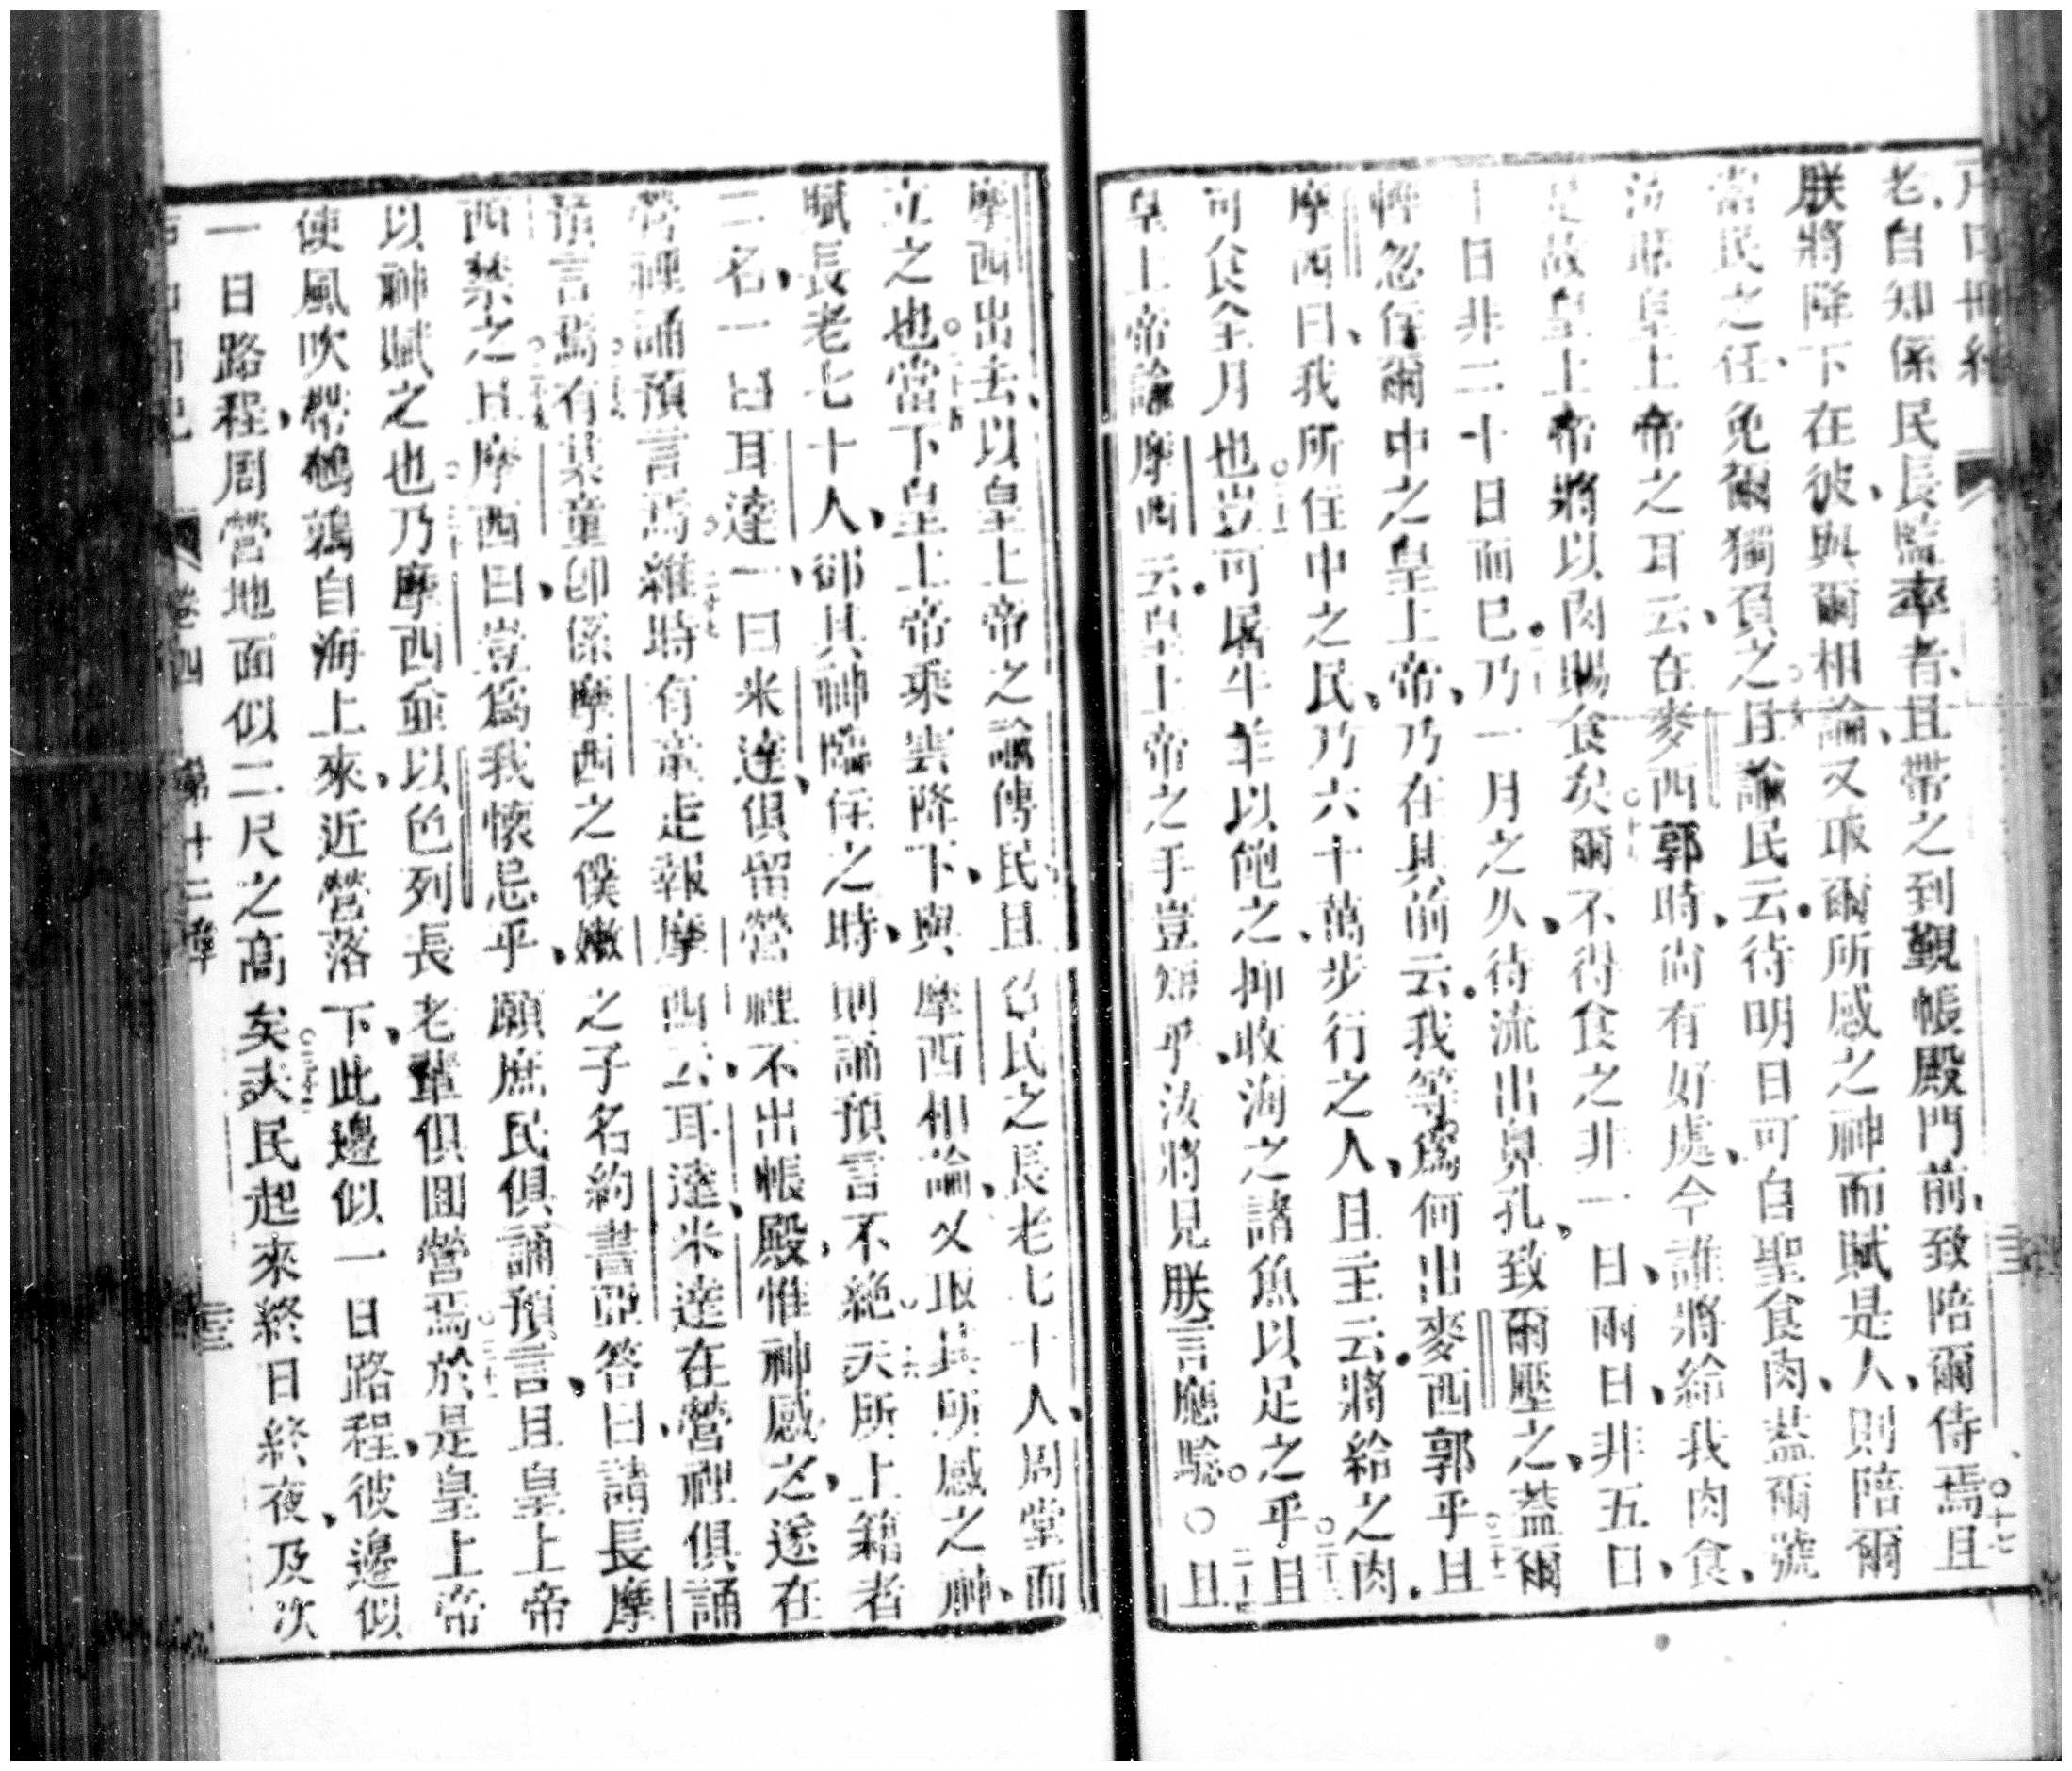 戶口冊紀
老、自知係民長監率者、且帶之到覲帳殿門前、致陪爾侍焉。○十七且
朕將降下在彼、與爾相論、又取爾所感之神而賦是人、則陪爾
當民之任、免爾獨負之。○十八且諭民云、待明日可自聖食肉、葢爾號
泣訴皇上帝之耳云、在麥西郭時、尚有好處、今誰將給我肉食、
是故皇上帝將以肉賜食矣。○十九爾不得食之非一日、兩日、非五日、
十日非二十日而已。○二十乃一月之久、待流出鼻孔、致爾壓之、葢爾
輕忽住爾中之皇上帝、乃在其前云、我等爲何出麥西郭乎。○二十一且
摩西曰、我所住中之民、乃六十萬步行之人、且主云、將給之肉、
可食全月也。○二十二豈可屠牛羊以飽之、抑收海之諸魚以足之乎。○二十三且
皇上帝諭摩西云、皇上帝之手豈短乎、汝將見朕言應驗。○二十四且
摩西出去、以皇上帝之諭傳民、且召民之長老七十人、周堂而
立之也。○二十五當下皇上帝乘雲降下、與摩西相論、又取其所感之神、
賦長老七十人、卻其神臨住之時、則誦預言不絕。○二十六夫所上籍者
二名、一曰耳達、一曰米達、俱留營裡、不出帳殿、惟神感之、遂在
營裡誦預言焉。○二十七維時有童走報摩西云、耳達、米達在營裡俱誦
預言焉。○二十八有某童卽係摩西之僕嫩之子名約書亞答曰、請長摩
西禁之。○二十九且摩西曰、豈爲我懷忌乎、願庶民俱誦預言、且皇上帝
以神賦之也。○三十乃摩西並以色列長老輩俱囬營焉。○三十一於是皇上帝
使風吹帶鵪鶉自海上來、近營落下、此邊似一日路程、彼邊似
一日路程、周營地面似二尺之高矣。○三十二夫民起來終日終夜、及次
卷四 第十二章